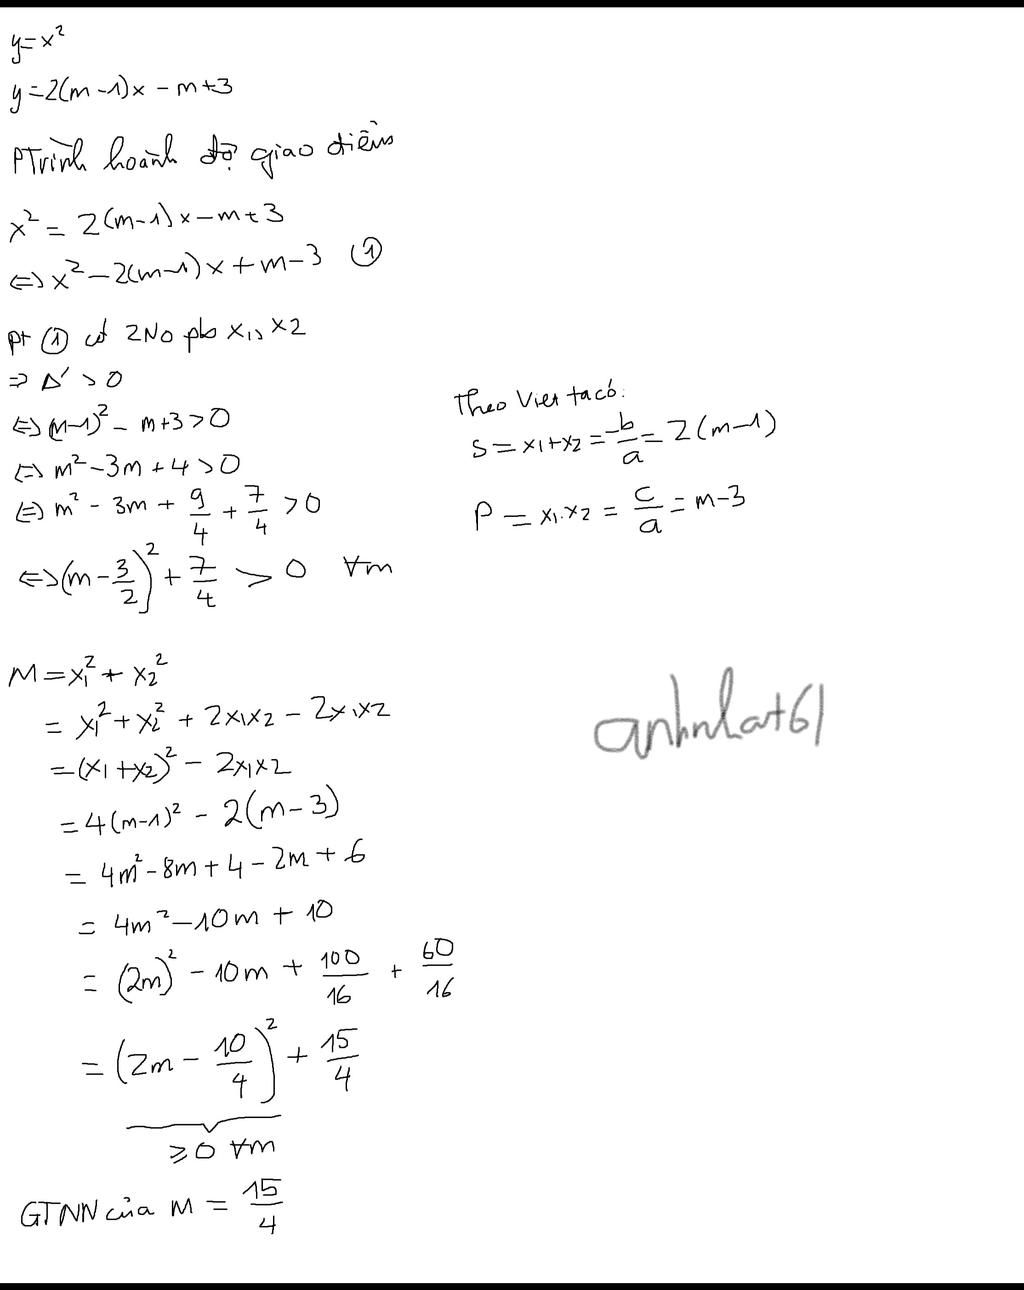 y=x²
y=2(m-1)x-m+3
PTrình hoành độ giao điểm
x² = 2(m-1)x-m+3
⇔ x²-2(m-1)x+m-3 ①
pt ① có 2No pb x₁, x₂
⇒ Δ' > 0
⇔ (m-1)² - m+3>0
⇔ m²-3m+4>0
⇔ m² - 3m + 9/4 + 7/4 > 0
⇔ (m-3/2)² + 7/4 > 0 ∀m
Theo Viet ta có:
S = x₁+x₂ = -b/a = 2(m-1)
P = x₁.x₂ = c/a = m-3
M = x₁² + x₂²
= x₁² + x₂² + 2x₁x₂ - 2x₁x₂
= (x₁+x₂)² - 2x₁x₂
= 4(m-1)² - 2(m-3)
= 4m²-8m+4-2m+6
= 4m²-10m+10
= (2m)² - 10m + 100/16 + 60/16
= (2m - 10/4)² + 15/4
≥0 ∀m
GTNN của M = 15/4
anhnhat61